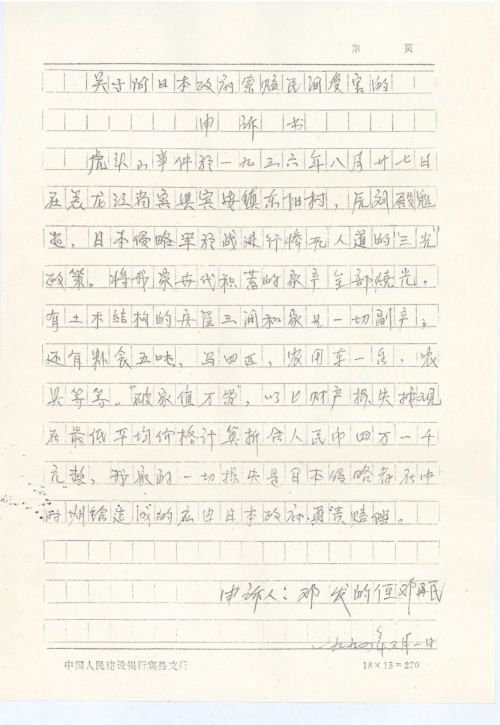 第 页
关于向日本政府索赔民间受害的
申诉书
虎头山事件于一九三六年八月廿七日
在黑龙江省宾县宾安镇东阳村，
日本侵略军 进行惨无人道的"三光"
政策。将我家世代积蓄的家产全部烧光，
有土木结构的房屋三间和家具一切副产，
还有粮食五吨，马四匹，农用车一台，农
具等等。"破家值万贯"，以上财产损失按现
在最低平均价格计算折合人民币四万一千
元整，我家的一切损失是日本侵略者在中
时期给造成的应由日本政府 赔偿。
申诉人：邓发的侄邓再民
一九九 年三月一日
中国人民建设银行宾县支行
18×15=270